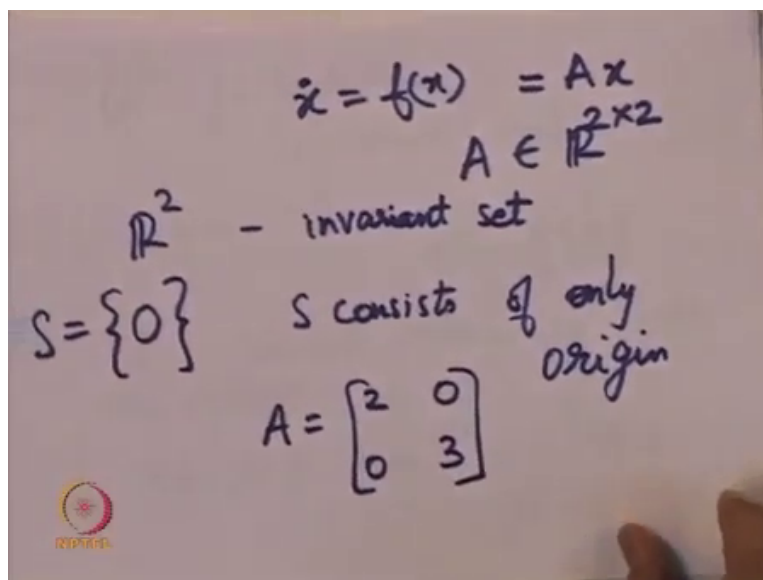 ẋ = f(x) = Ax
A ∈ ℝ^{2×2}
ℝ² - invariant set
S = {0} S consists of only
origin
A = [2 0
0 3]
NPTEL